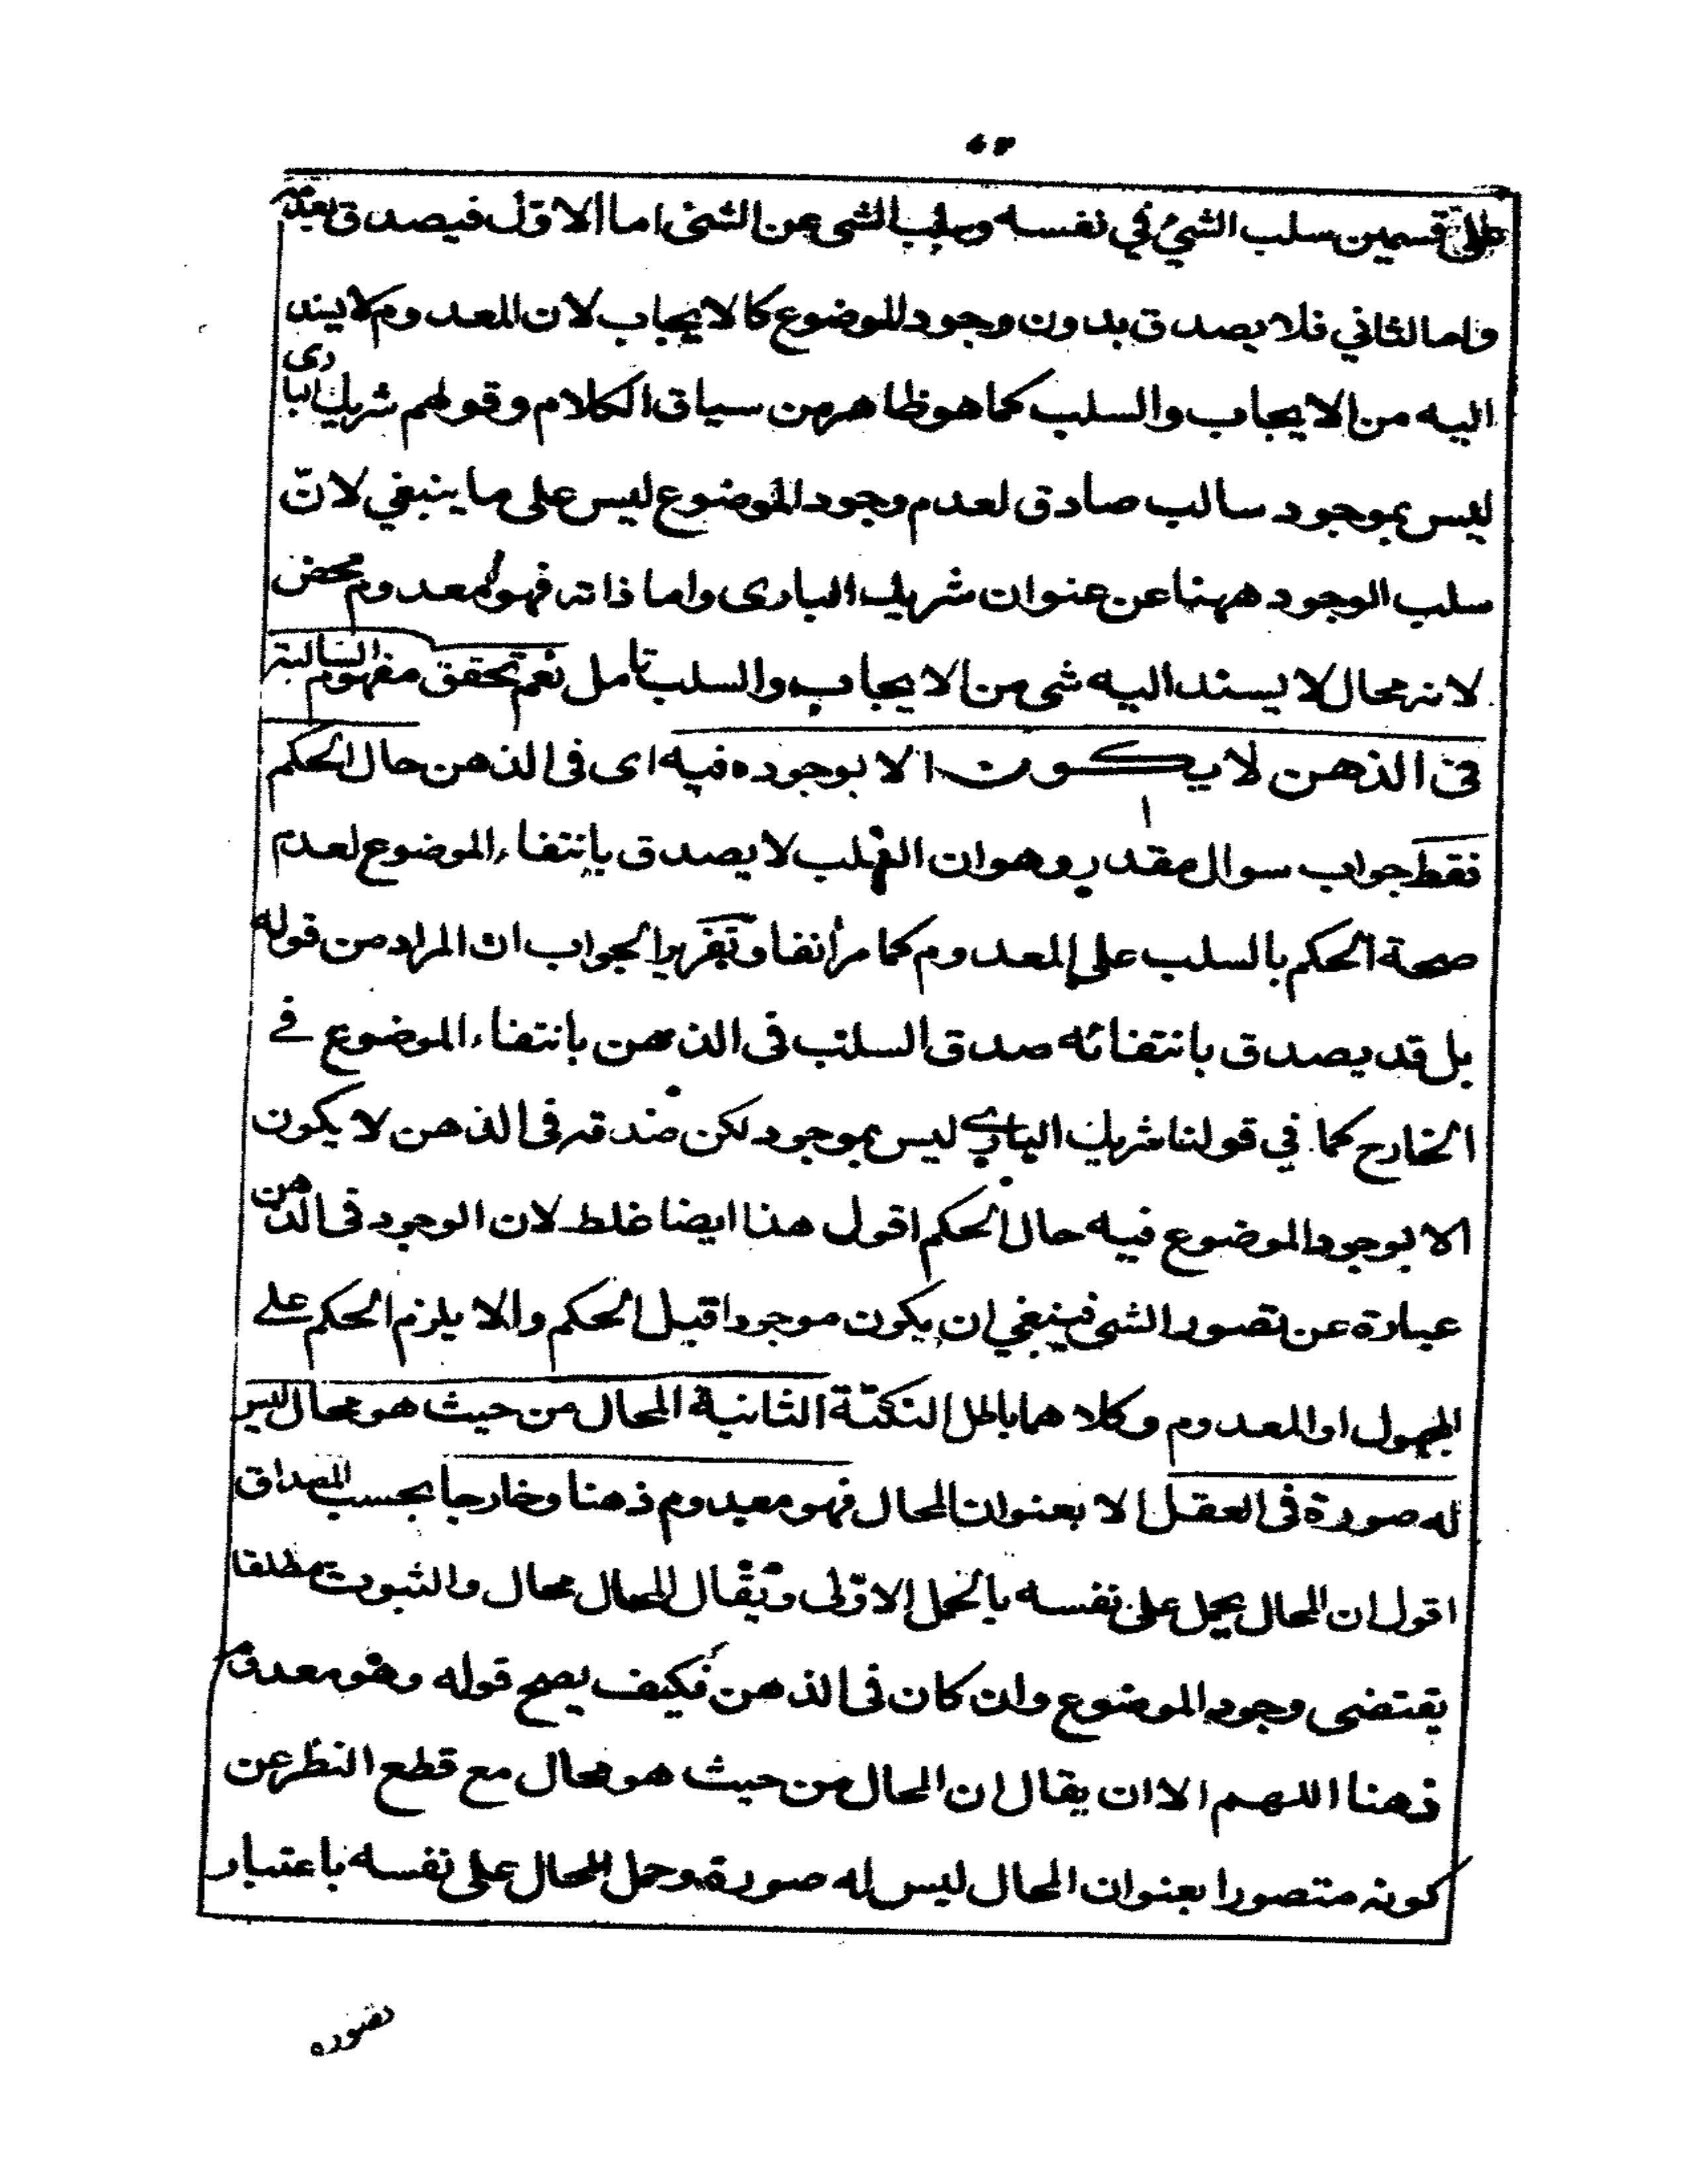 على قسمين سلب الشئ في نفسه وسلب الشى عن الشئى اما الاول فيصدق بعدم
واما الثاني فلا يصدق بدون وجود الموضوع كالايجاب لان المعدوم لا يسند
اليه من الايجاب والسلب كما هو ظاهر من سياق الكلام وقولهم شريك البارى
ليس بموجود سالب صادق لعدم وجود الموضوع ليس على ما ينبغي لانّ
سلب الوجود ههنا عن عنوان شريك البارى واما ذاته فهو معدوم محض
لانه محال لا يسند اليه شى من الايجاب والسلب تامل نعم تحقق مفهوم السالبة
فى الذهن لا يكون الا بوجوده فيه اى فى الذهن حال الحكم
فقط جواب سوال مقدر وهو ان السلب لا يصدق بانتفاء الموضوع لعدم
صحة الحكم بالسلب على المعدوم كما مر أنفا وتقرير الجواب ان المراد من قوله
بل قد يصدق بانتفائه صدق السلب فى الذهن بانتفاء الموضوع في
الخارج كما في قولنا شريك الباري ليس بموجود لكن صدقه فى الذهن لا يكون
الا بوجود الموضوع فيه حال الحكم اقول هذا ايضا غلط لان الوجود فى الذهن
عبارة عن تصور الشى فينبغي ان يكون موجودا قبل الحكم والا يلزم الحكم على
المجهول او المعدوم وكلاهما باطل النكتة الثانية المحال من حيث هو محال ليس
له صورة فى العقل الا بعنوان المحال فهو معدوم ذهنا وخارجا بحسب المصداق
اقول ان المحال يحمل على نفسه بالحمل الاوّلى ويقال المحال محال والثبوت مطلقا
يقتضى وجود الموضوع وان كان فى الذهن فكيف يصح قوله وهو معدوم
ذهنا اللهم الا ان يقال ان المحال من حيث هو محال مع قطع النظر عن
كونه متصورا بعنوان المحال ليس له صورة وحمل المحال على نفسه باعتبار
تصوره